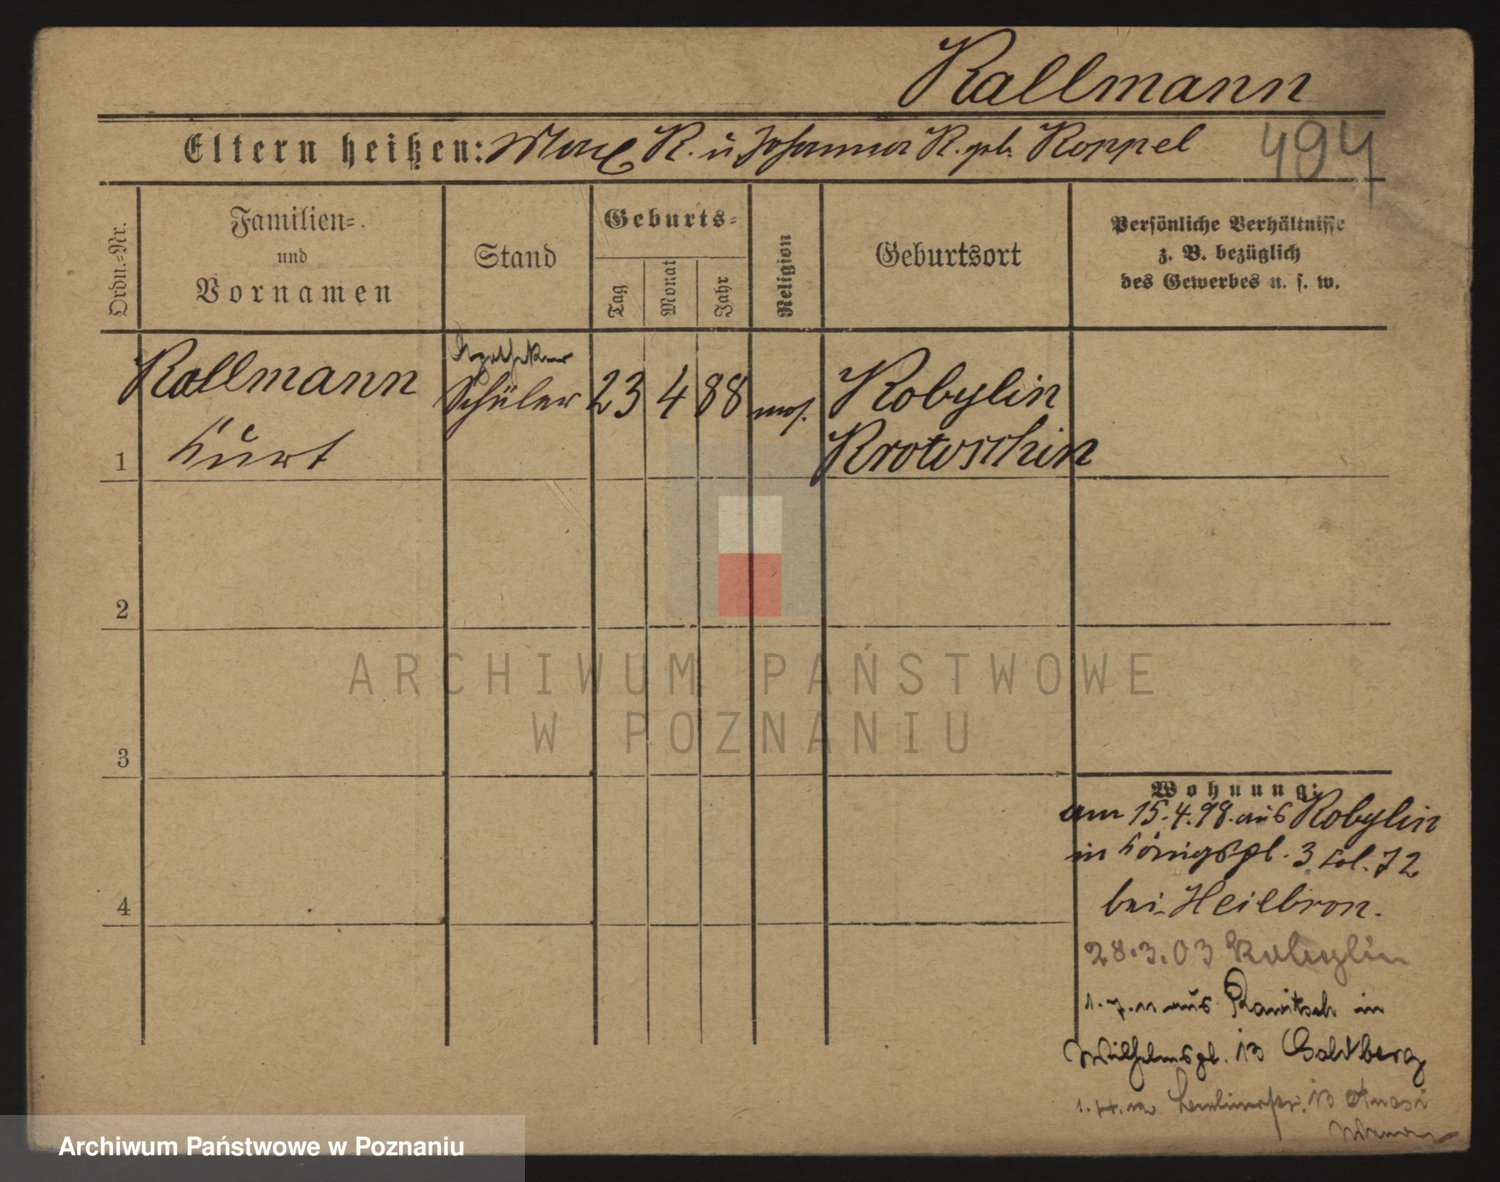 Kallmann
Eltern heißen: Max K. u Johanna K. geb. Koppel
494
Ordn.-Nr.
Familien-
und
Vornamen
Stand
Geburts-
Tag
Monat
Jahr
Religion
Geburtsort
Persönliche Verhältnisse
z. B. bezüglich
des Gewerbes u. s. w.
Apotheker
Kallmann Schüler 23 4 88 mos. Kobylin
1 Kurt Krotoschin
2
3
4
Wohnung:
am 15.4.98. aus Kobylin
in Königspl. 3 Kol. 72
bei Heilbron.
28.3.03 Kobylin
1.7.11 aus Rawitsch in
Wilhelmspl. 13 Goldberg
ARCHIWUM PAŃSTWOWE
W POZNANIU
Archiwum Państwowe w Poznaniu